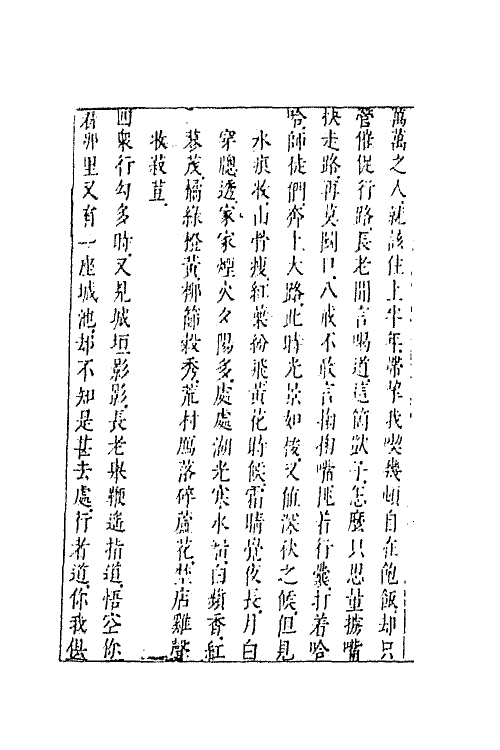 萬萬之人就該住上半年帶挈我喫幾頓自在飽飯却只
管催促行路長老聞言喝道這箇獃子怎麼只思量擄嘴
快走路再莫閗口八戒不敢言掬掬嘴挑着行囊打着哈
哈師徒們奔上大路此時光景如梭又值深秋之候但見
水痕收山骨瘦紅葉紛飛黃花時候霜晴覺夜長月白
穿牕透家家煙火夕陽多處處湖光寒水溜白蘋香紅
蓼茂橘綠橙黃柳衰穀秀荒村鴈落碎蘆花埜店雞聲
收菽荳
四衆行勾多時又見城垣影影長老舉鞭遙指道悟空你
看那里又有一座城池却不知是甚去處行者道你我俱